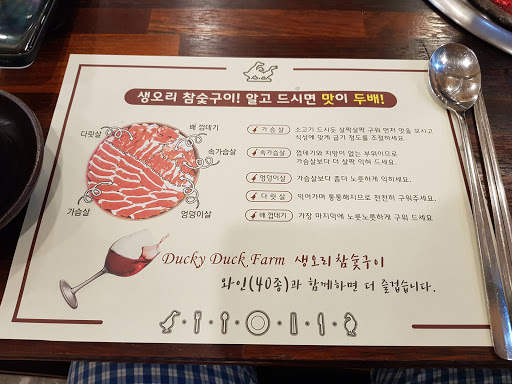 생오리 참숯구이! 알고 드시면 맛이 두배!
다릿살
배 껍데기
속가슴살
가슴살
엉덩이살
가 슴 살
소고기 드시듯 살짝살짝 구워 먼저 맛을 보시고
식성에 맞게 굽기 정도를 조절하세요
속가슴살
껍데기와 지방이 없는 부위이므로
가슴살보다 더 살짝 익혀 드세요.
엉덩이살
가슴살보다 좀더 노릇하게 익히세요.
다 릿 살
익어가며 통통해지므로 천천히 구워주세요.
배 껍데기
가장 마지막에 노릇노릇하게 구워 드세요
Ducky Duck Farm 생오리 참숯구이
와인(40종)과 함께하면 더 즐겁습니다.